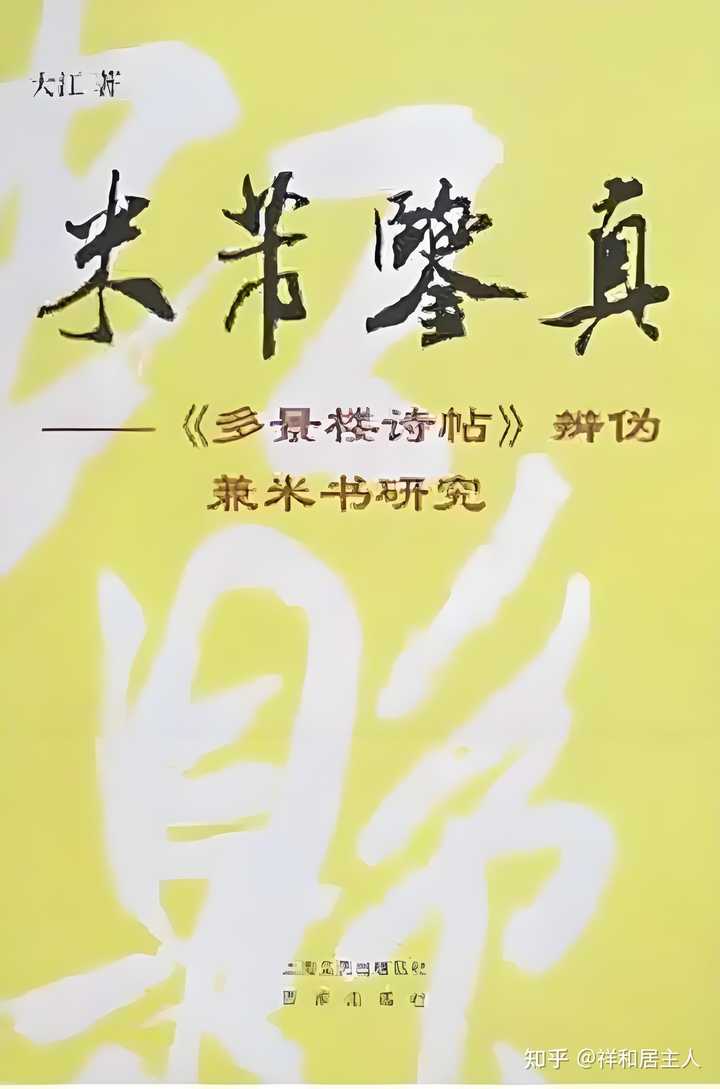 大江 著
米芾鑒真
——《多景楼诗帖》辨伪
兼米书研究
知乎 @祥和居主人